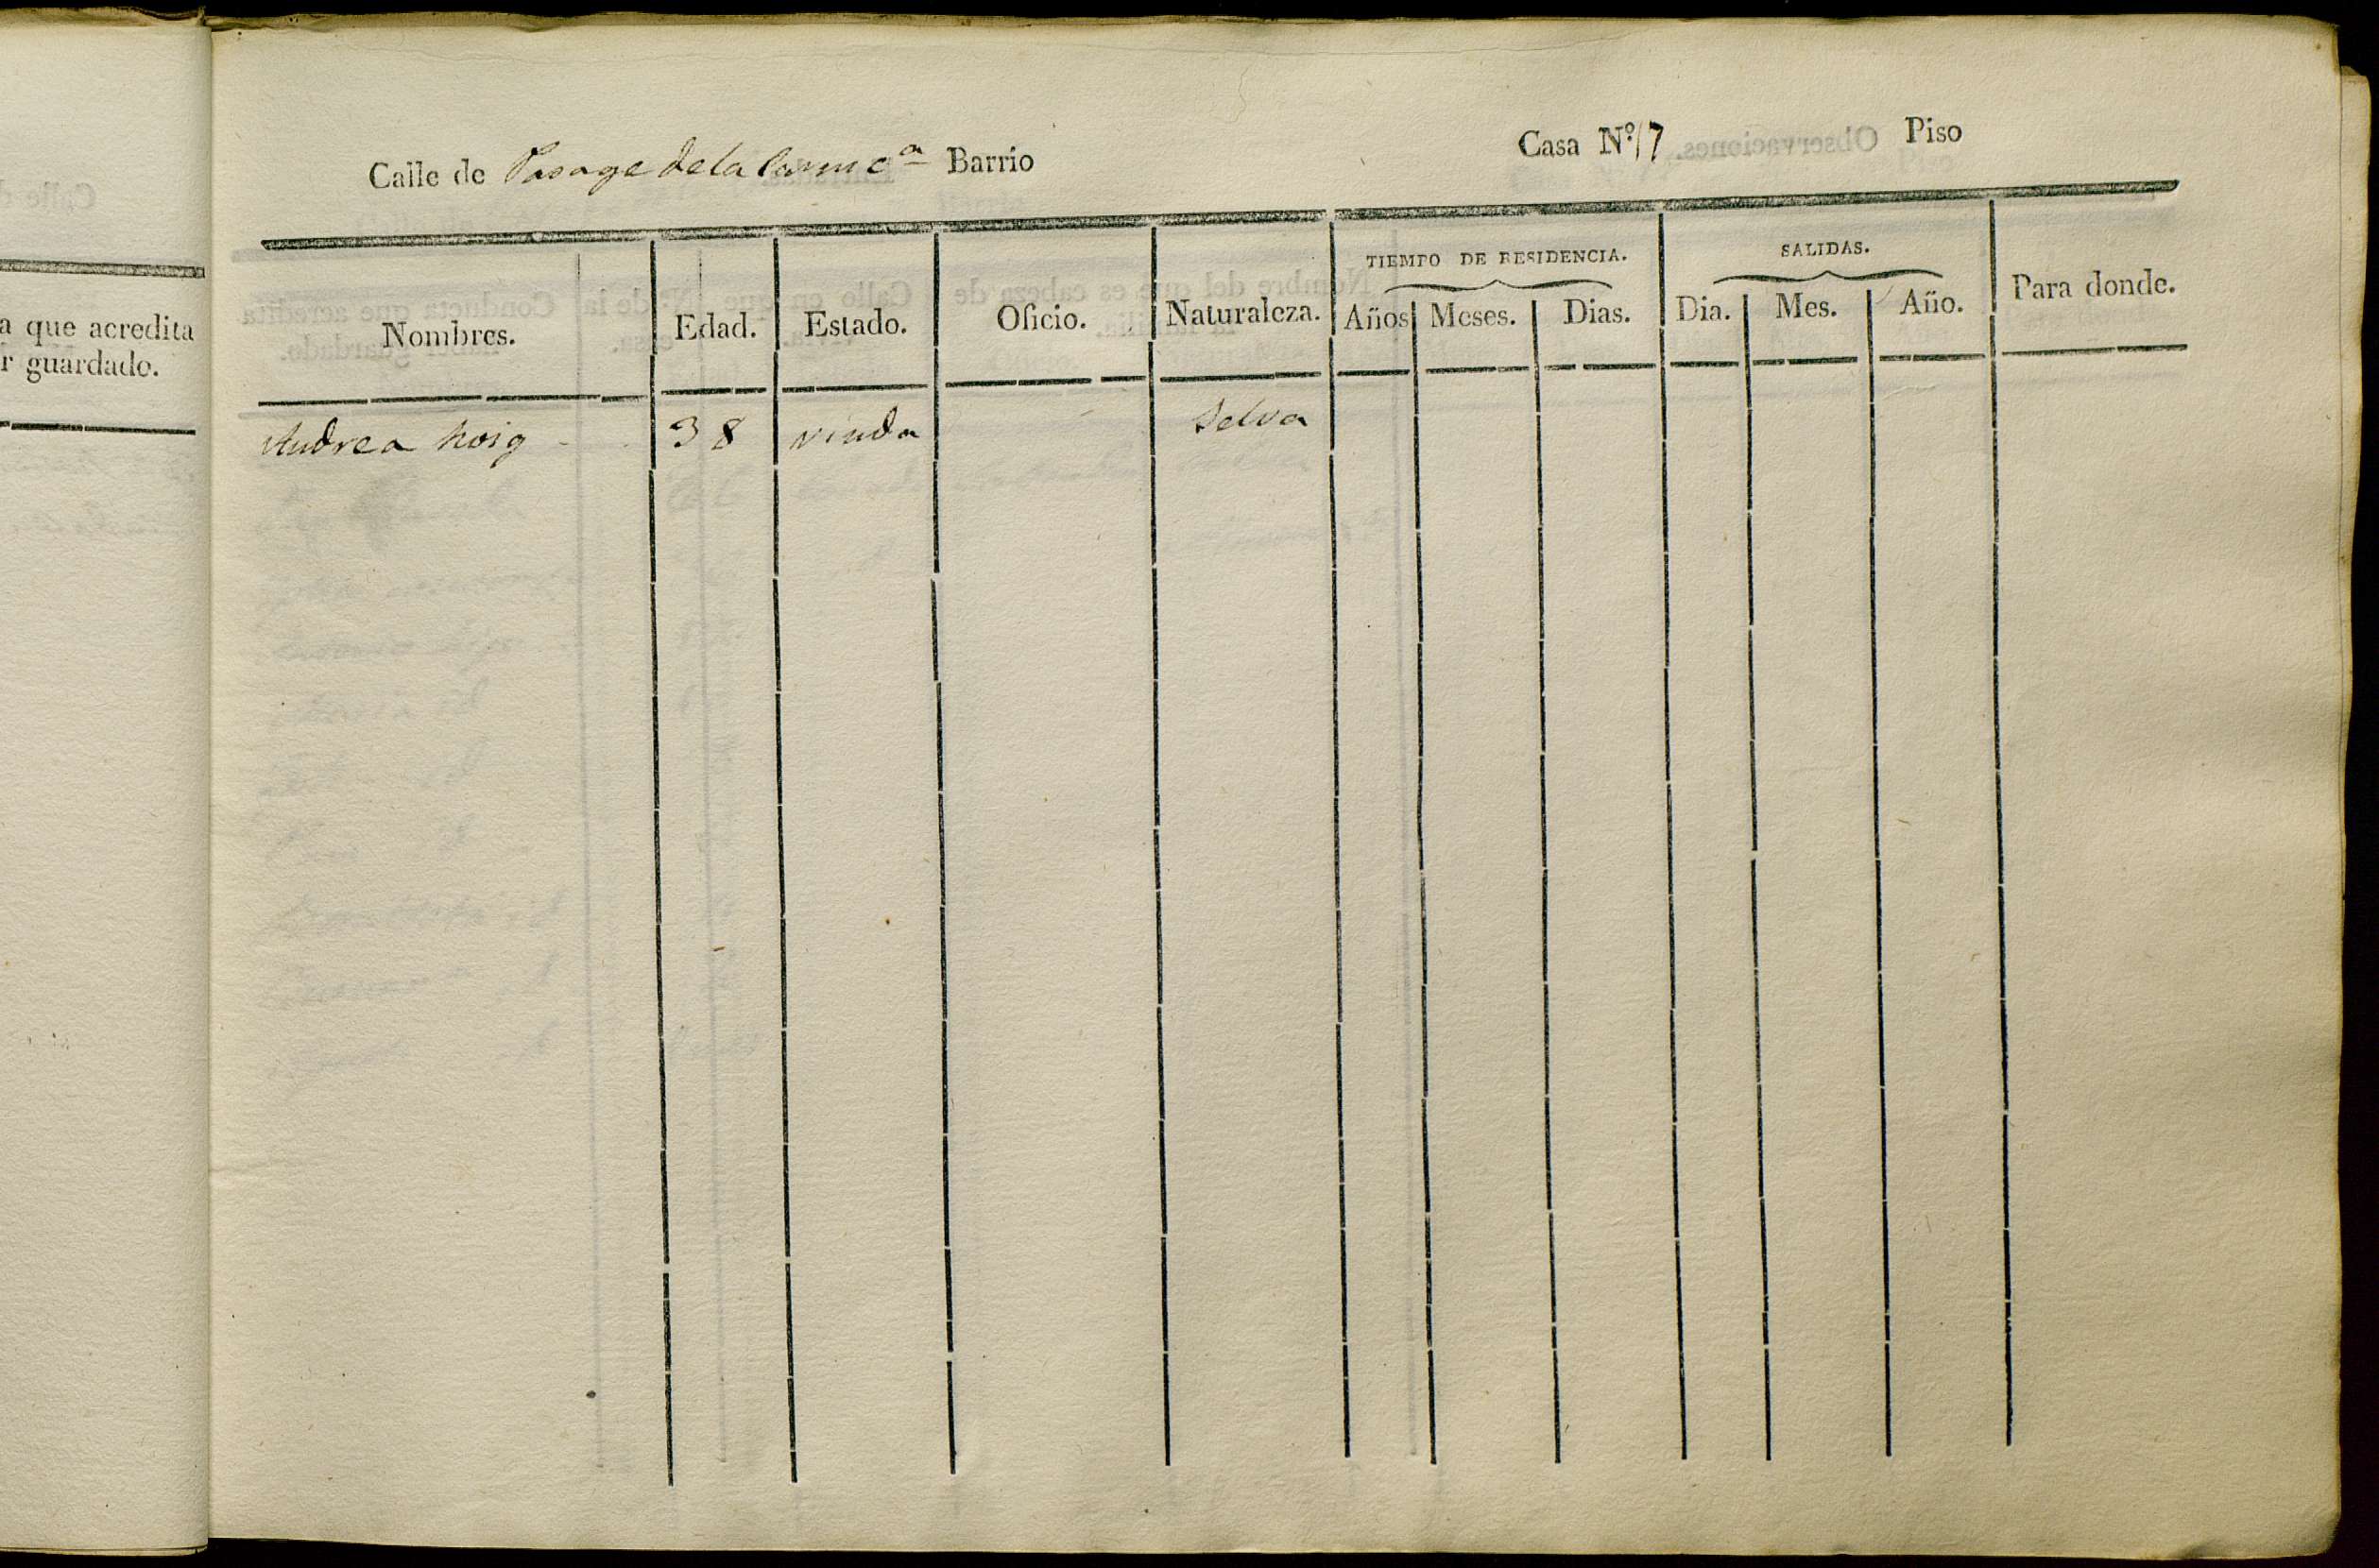 a que acredita
r guardado.
Calle de Pasage de la Carnic.ª Barrio Casa N.º 17 Piso
Nombres. Edad. Estado. Oficio. Naturaleza. TIEMPO DE RESIDENCIA. Años Meses. Dias. SALIDAS. Dia. Mes. Año. Para donde.
Andrea Roig 38 viuda Selva